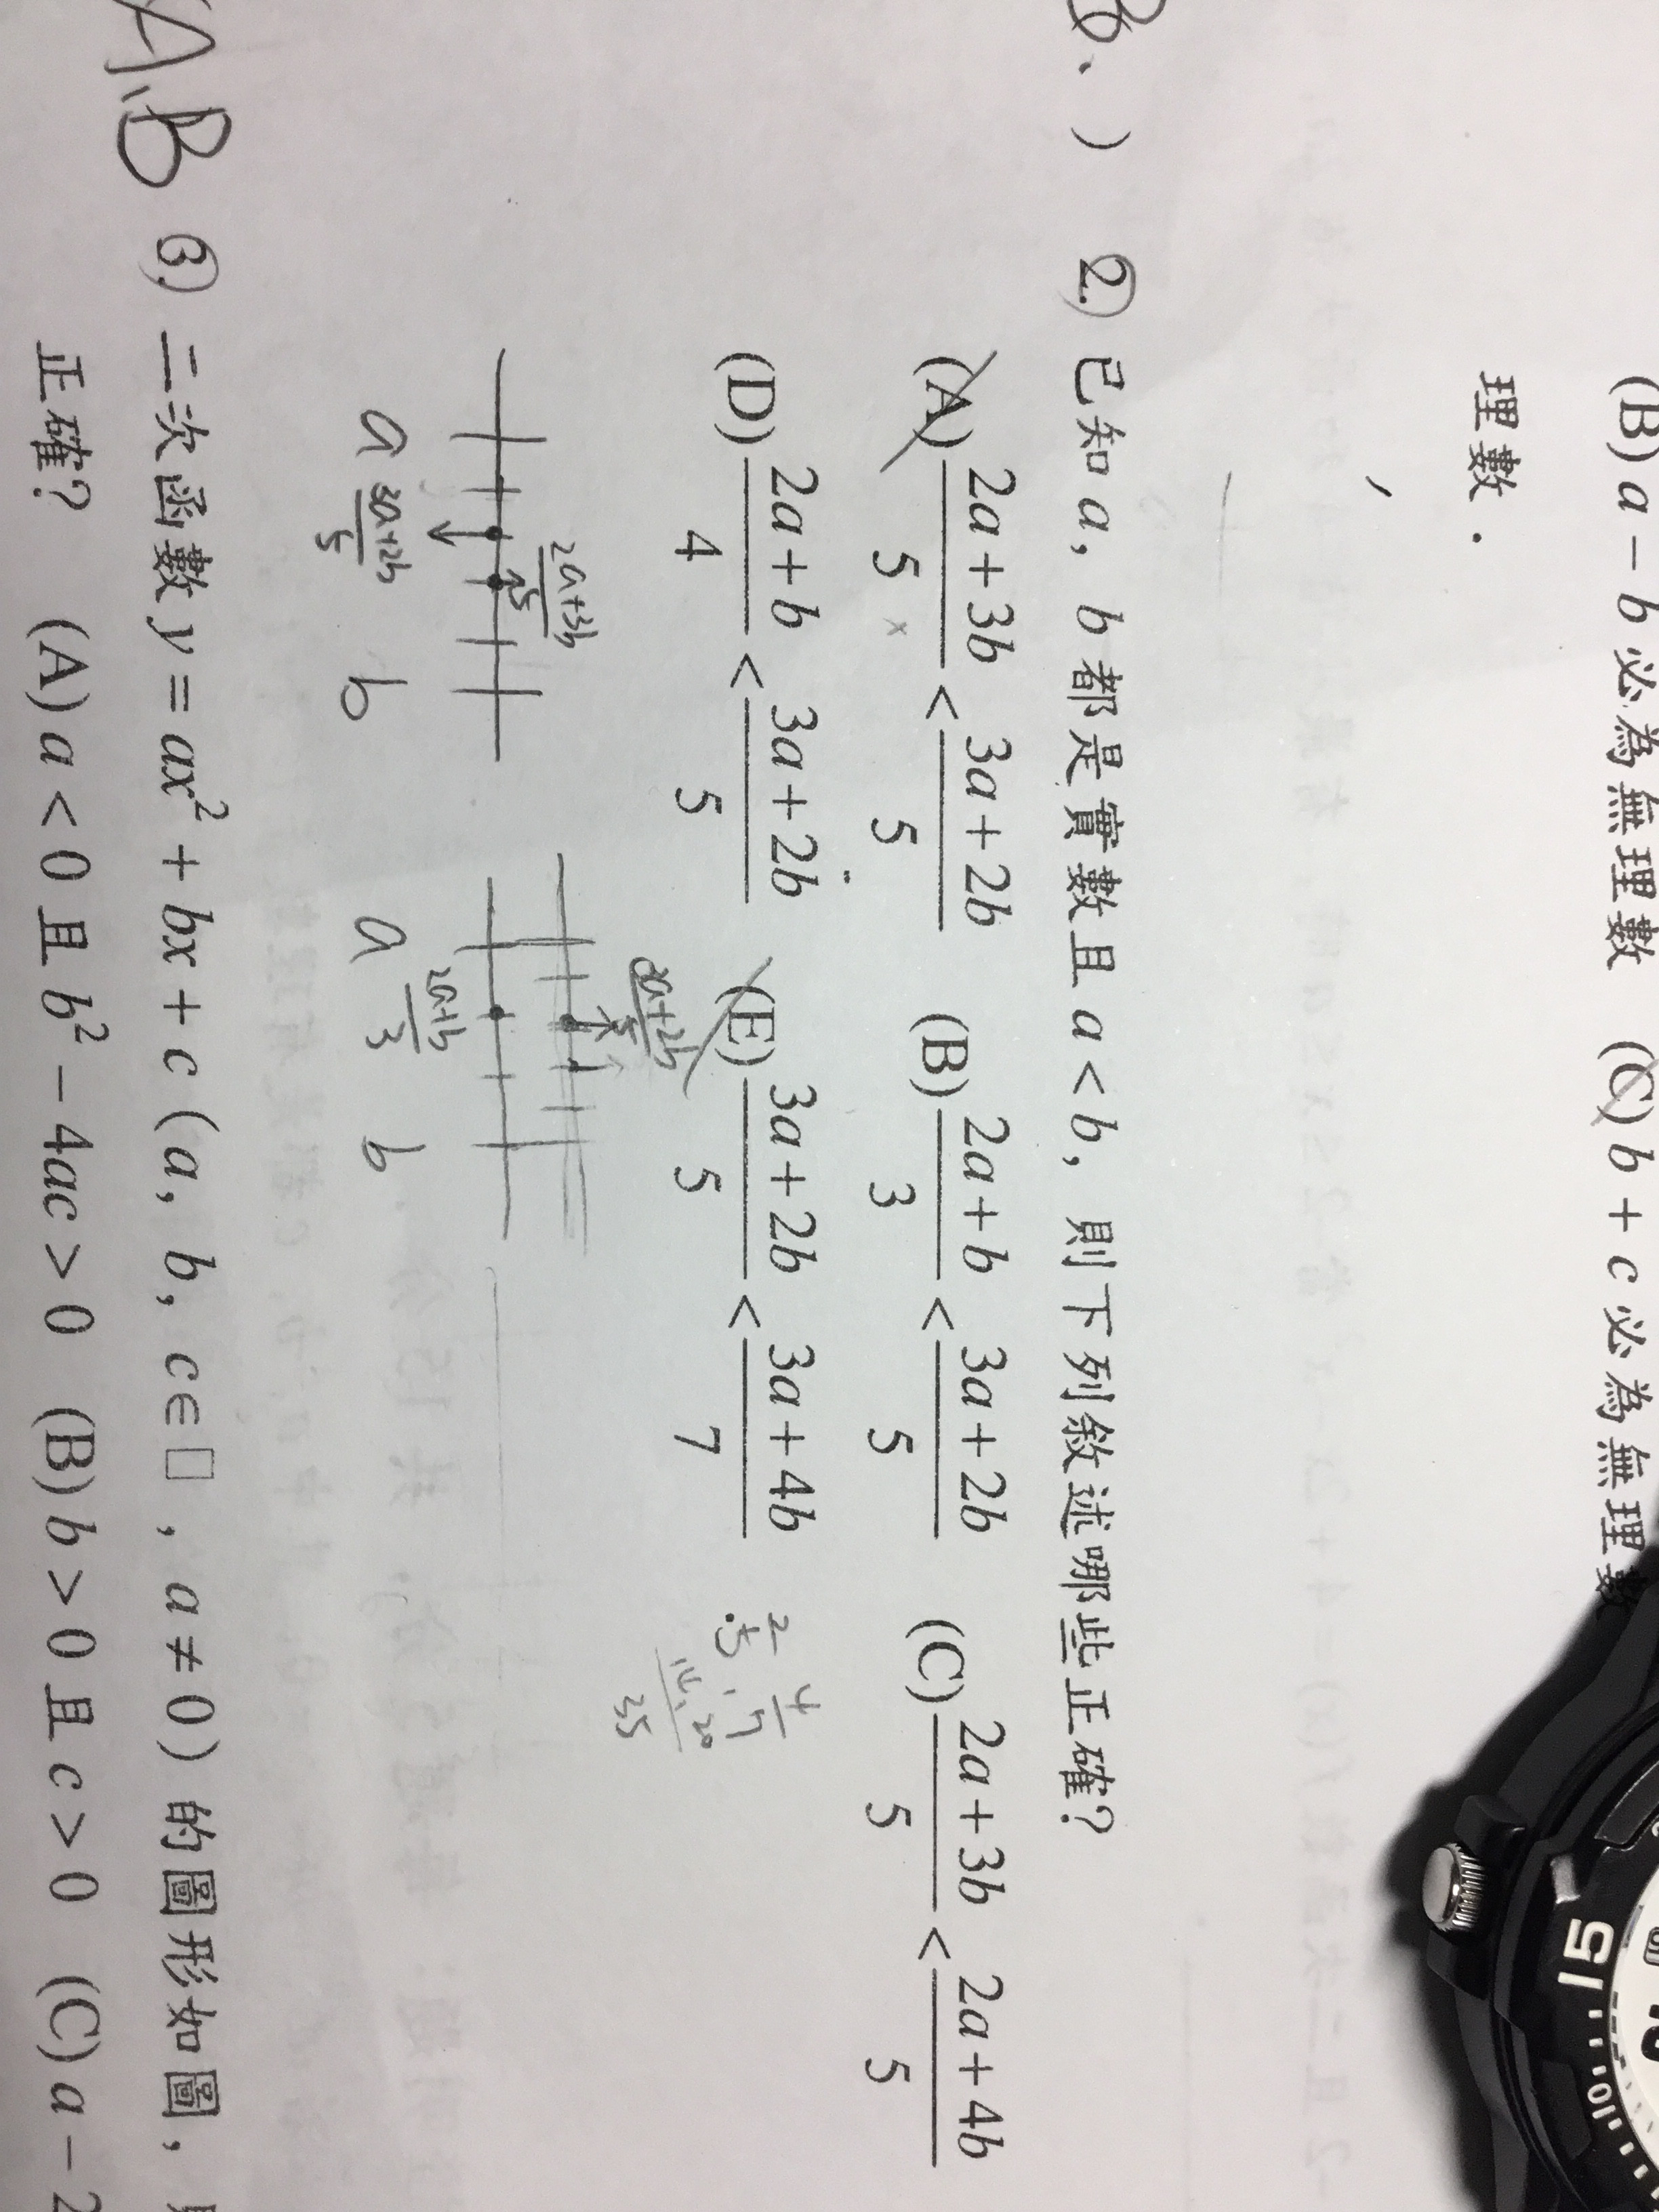 (B) a − b 必為無理數 (C) b + c 必為無理數
理數．
B、) 2. 已知 a, b 都是實數且 a < b, 則下列敘述哪些正確?
(A) (2a + 3b)/5 < (3a + 2b)/5 (B) (2a + b)/3 < (3a + 2b)/5 (C) (2a + 3b)/5 < (2a + 4b)/5
(D) (2a + b)/4 < (3a + 2b)/5 (E) (3a + 2b)/5 < (3a + 4b)/7
2/5, 4/7
14, 20
35
(2a+3b)/5
a (3a+2b)/5 b
(3a+2b)/5
a (2a+b)/3 b
A、B 3. 二次函數 y = ax² + bx + c (a, b, c ∈ □ , a ≠ 0) 的圖形如圖,
正確? (A) a < 0 且 b² − 4ac > 0 (B) b > 0 且 c > 0 (C) a − 2
15
10